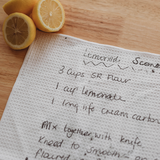 Lemonade Scones
3 cups SR Flour
1 cup lemonade
1 long life cream carton
Mix together, with knife
Knead to smooth
floured